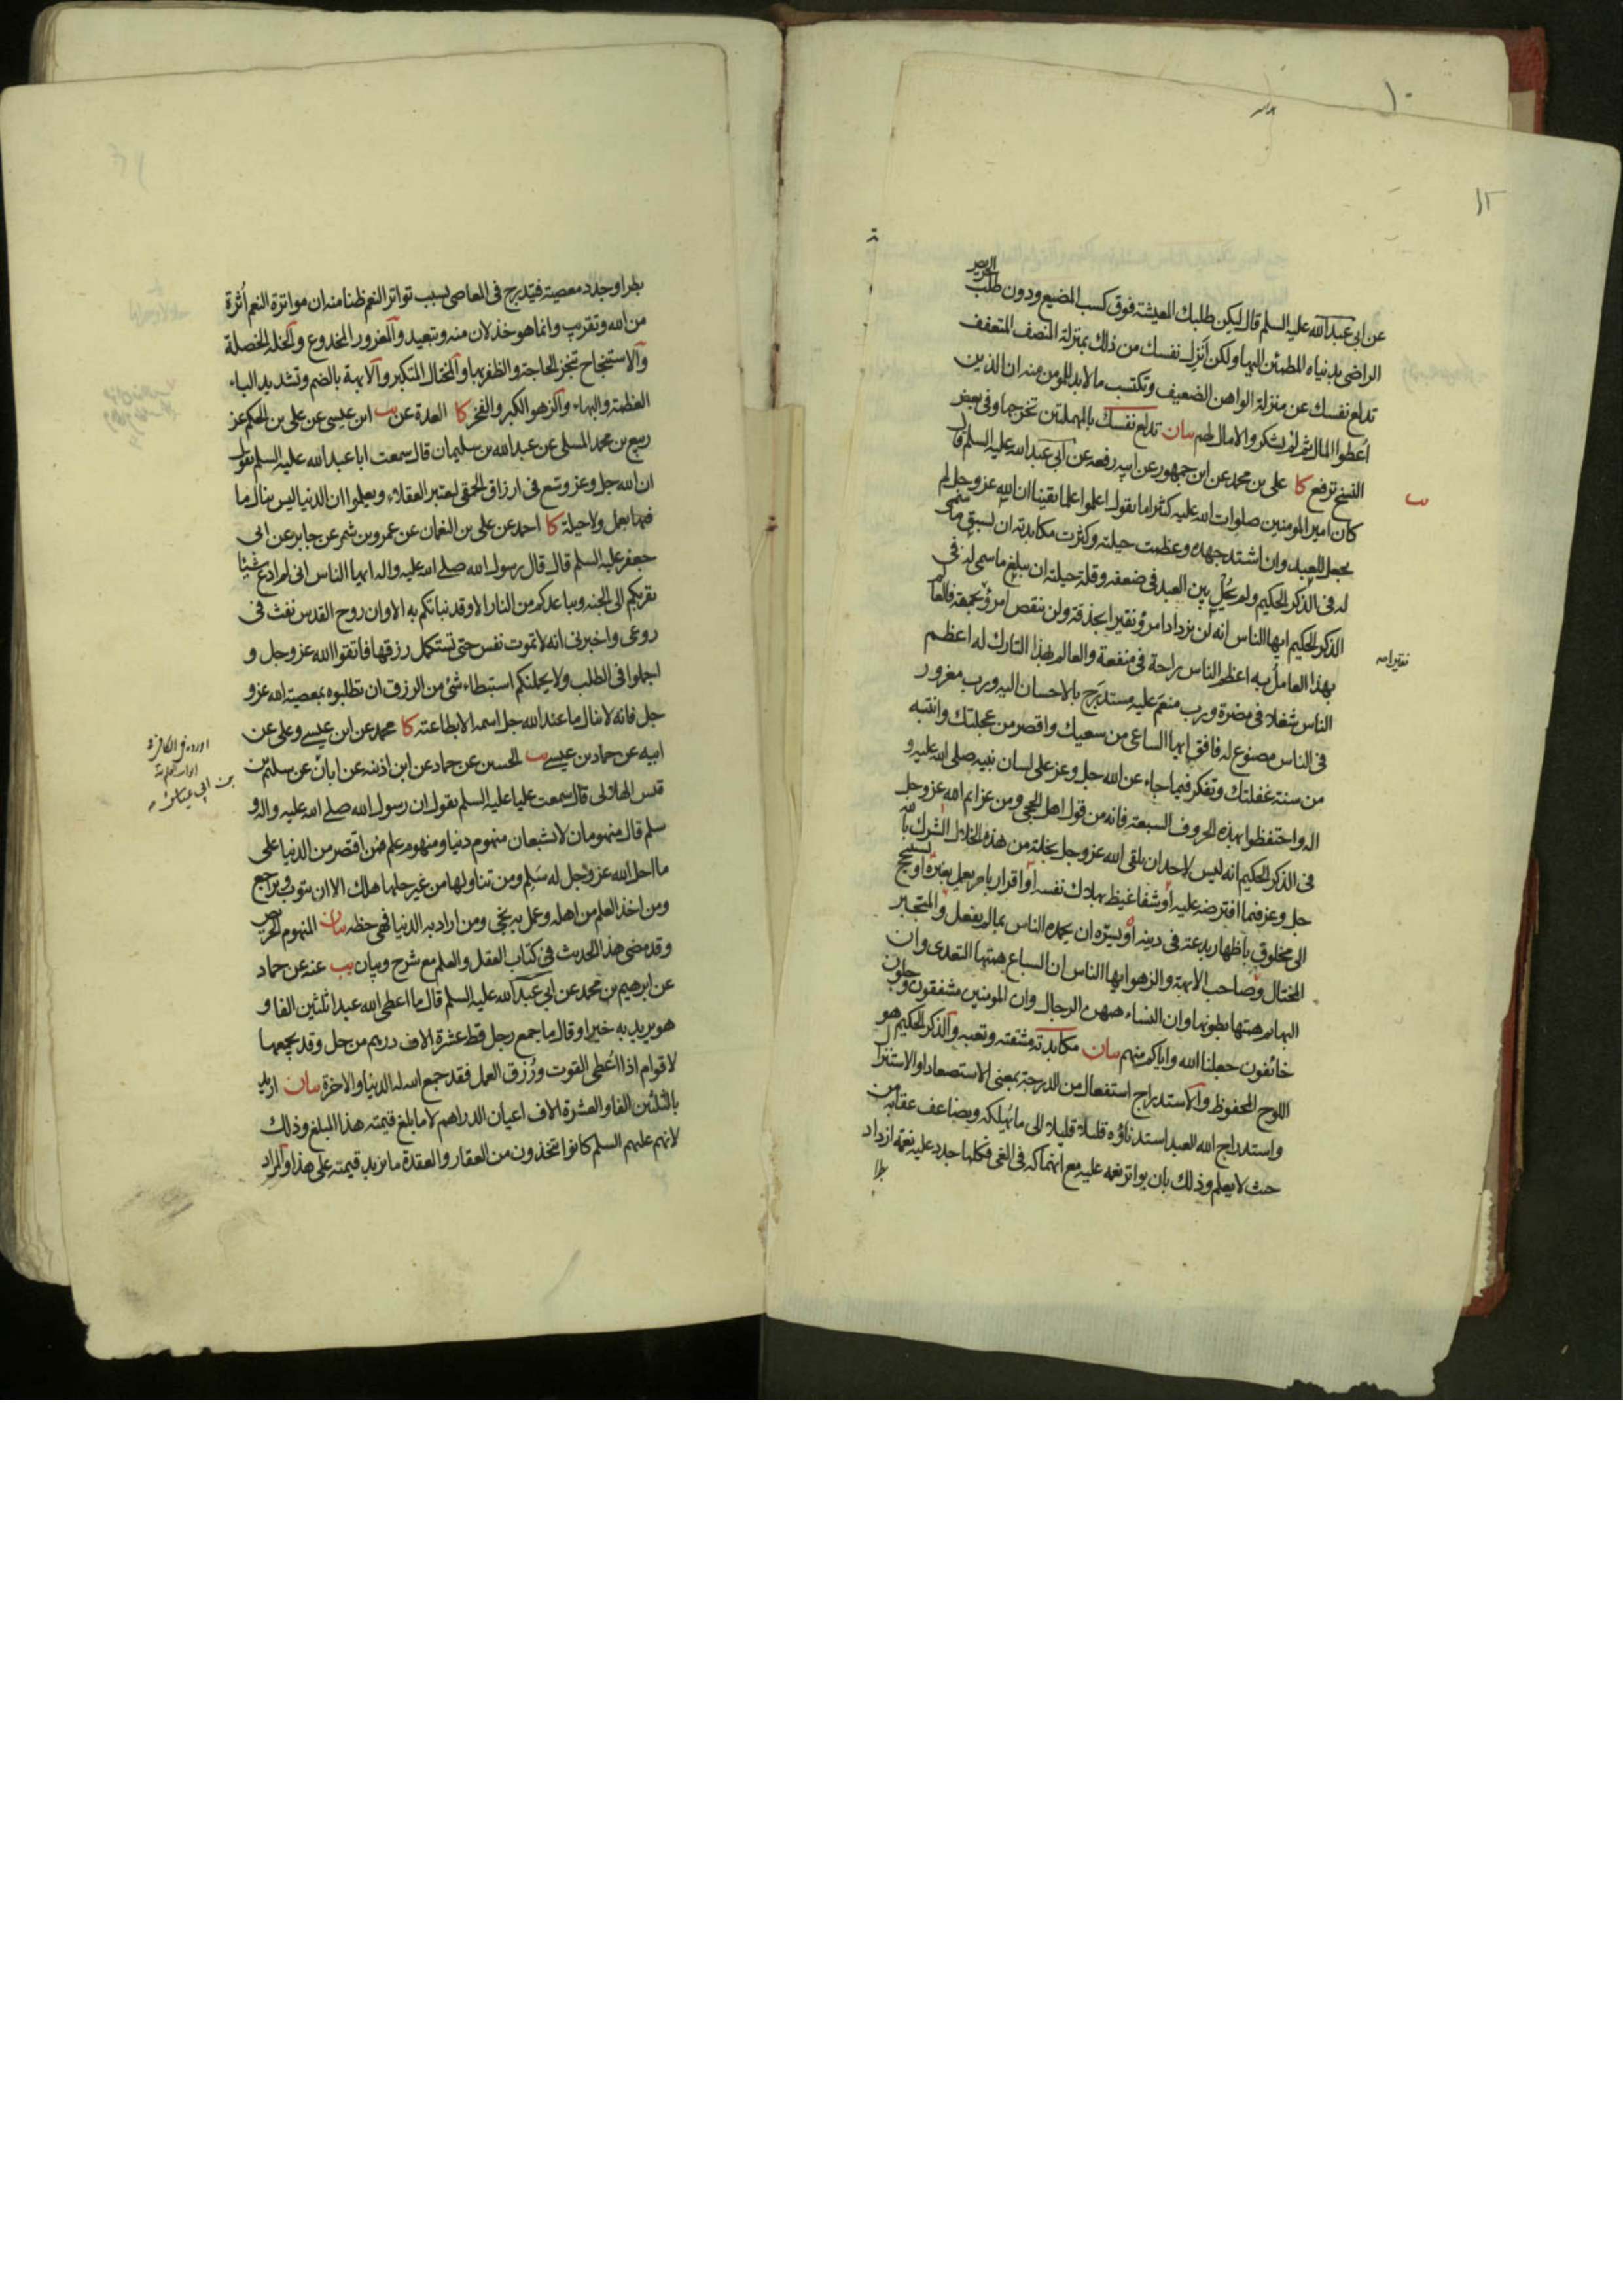 ١٠
١٢
عن ابی عبدالله علیه السلم قال لیکن طلبك المعیشة فوق کسب المضیع ودون طلب الحریص
الراضی بدنیاه المطمئن الیها ولکن اَنزِل نفسك من ذلك بمنزلة المنصف المتعفف
تدلع نفسك عن منزلة الواهن الضعیف وتکتسب مالابد للمومن منه ان الذین
اُعطوا المال ثم لم یشکروا لامال لهم بیان تدلع نفسك بالمهملتین تخرجها وفی بعض
النسخ ترفع کا علی بن محمد عن ابن جمهور عن ابیه رفعه عن ابی عبدالله علیه السلم قال
کان امیرالمومنین صلوات الله علیه کثیرا ما یقول اعلموا علما یقینا ان الله عز وجل لم
یجعل للعبد وان اشتد جهده وعظمت حیلته وکثرت مکابدته ان یسبق ما سمی
له فی الذکر الحکیم ولم یُحَل بین العبد فی ضعفه وقلة حیلته ان یبلغ ما سمی له فی
الذکر الحکیم ایها الناس انه لن یزداد امرؤ نقیرا بحذقه ولن ینقص امرؤ لحمقه فالعالم
نقیرا صه
بهذا العامل به اعظم الناس راحة فی منفعة والعالم بهذا التارك له اعظم
الناس شغلا فی مضرة ورب منعَم علیه مستدرَج بالاحسان الیه ورب مغرور
فی الناس مصنوع له فافق ایها الساعی من سعیك واقصر من عجلتك وانتبه
من سنة غفلتك وتفکر فیما جاء عن الله جل وعز علی لسان نبیه صلی الله علیه و
اله واحتفظوا بهذه الحروف السبعة فانه من قول اهل الحجی ومن عزائم الله عز وجل
فی الذکر الحکیم انه لیس لاحد ان یلقی الله عز وجل بخلة من هذه الخلال الشرك بالله
جل وعز فیما افترضه علیه او شفا غیظ بهلاك نفسه او اقرار بامر یعمل بغیره او یستنجح
الی مخلوق باظهار بدعة فی دینه او یسرّه ان یحمده الناس بمالم یفعل والمتجبر
المختال وصاحب الابهة والزهو ایها الناس ان السباع همتها التعدی وان
البهائم همتها بطونها وان النساء همهن الرجال وان المومنین مشفقون وجلون
خائفون جعلنا الله وایاکم منهم بیان مکابدته مشقته وتعبه والذکر الحکیم هو
اللوح المحفوظ والاستدراج استفعال من الدرجة بمعنی الاستصعاد او الاستنزال
واستدراج الله العبد استدناؤه قلیلا قلیلا الی ما یُهلکه ویضاعف عقابه من
حیث لا یعلم وذلك بان یواتر نعمه علیه مع انهماکه فی الغی فکلما جدد علیه نعمة ازداد
بطرا
بطرا وجدد معصیة فیتدرج فی المعاصی بسبب تواتر النعم ظنا منه ان مواترة النعم اُثرة
من الله وتقریب وانما هو خذلان منه وتبعید والمغرور المخدوع والخلة الخصلة
والاستنجاح تنجز الحاجة والظفر بها والمختال المتکبر والابهة بالضم وتشدید الباء
العظمة والبهاء والزهو الکبر والفخر کا العدة عن یب ابن عیسی عن علی بن الحکم عن
ربیع بن محمد المسلی عن عبدالله بن سلیمان قال سمعت ابا عبدالله علیه السلم یقول
ان الله جل وعز وسّع فی ارزاق الحمقی لیعتبر العقلاء ویعلموا ان الدنیا لیس ینال ما
فیها بعمل ولا حیلة کا احمد عن علی بن النعمان عن عمرو بن شمر عن جابر عن ابی
جعفر علیه السلم قال قال رسول الله صلی الله علیه واله ایها الناس انی لم ادع شیئا
یقربکم الی الجنه ویباعدکم من النار الا وقد نباتکم به الا وان روح القدس نفث فی
روعی واخبرنی انه لا تموت نفس حتی تستکمل رزقها فاتقوا الله عز وجل و
اجملوا فی الطلب ولا یحملنکم استبطاء شئ من الرزق ان تطلبوه بمعصیة الله عز و
جل فانه لا ینال ما عند الله جل اسمه الا بطاعته کا محمد عن ابن عیسی وعلی عن
ابیه عن حماد بن عیسی یب الحسین عن حماد عن ابن اذینه عن ابان عن سلیم بن
بن ابی عیاش صه
قیس الهلالی قال سمعت علیا علیه السلم یقول ان رسول الله صلی الله علیه واله و
سلم قال منهومان لا یشبعان منهوم دنیا ومنهوم علم فمن اقتصر من الدنیا علی
ما احل الله عز وجل له سَلِم ومن تناولها من غیر حلها هلك الا ان یتوب ویراجع
ومن اخذ العلم من اهله وعمل به نجی ومن اراد به الدنیا فهی حظه بیان المنهوم الحریص
وقد مضی هذا الحدیث فی کتاب العقل والعلم مع شرح وبیان یب عنه عن حماد
عن ابرهیم بن محمد عن ابی عبدالله علیه السلم قال ما اعطی الله عبدا ثلثین الفا و
هو یرید به خیرا وقال ما جمع رجل قط عشرة الاف درهم من حل وقد یجمعها
لاقوام اذا اُعطی القوت ورُزق العمل فقد جمع الله له الدنیا والاخرة بیان ارید
بالثلثین الفا والعشرة الاف اعیان الدراهم لا ما بلغ قیمته هذا المبلغ وذلك
لانهم علیهم السلم کانوا یتخذون من العقار والعقدة ما یزید قیمته علی هذا والمراد